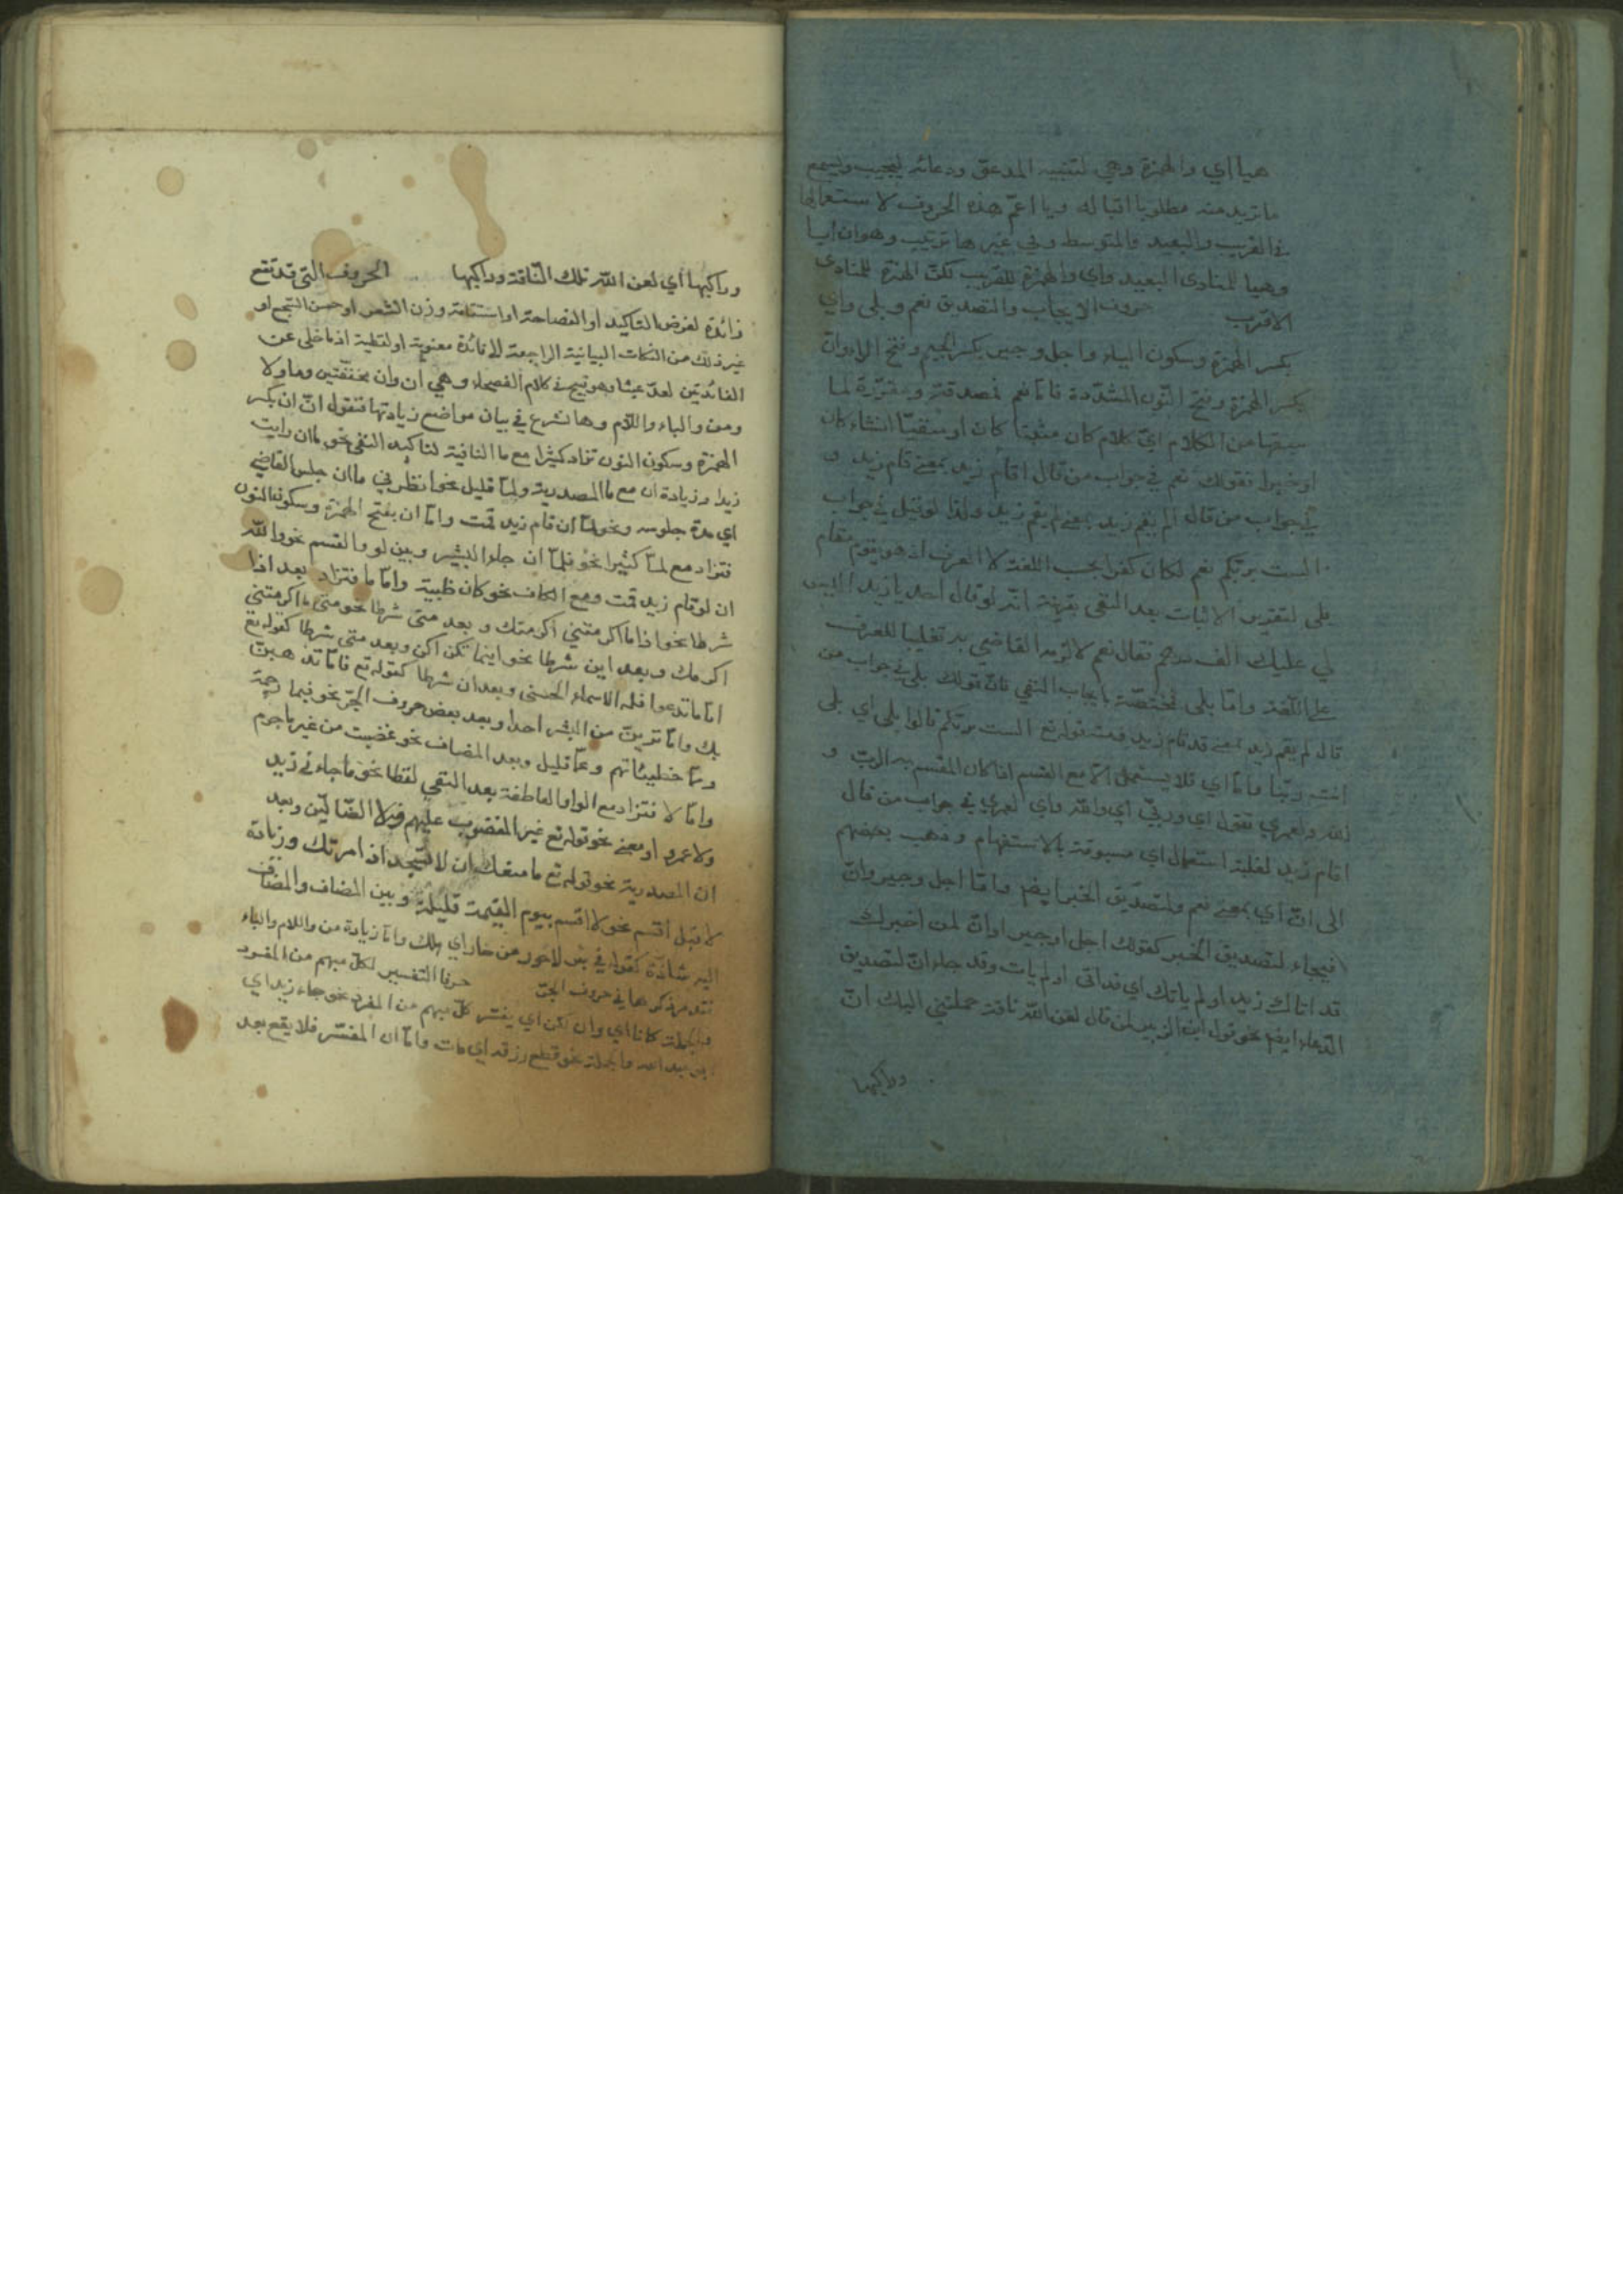 هيا اي والهمزة وهي لتنبيه المدعو ودعائه ليجيب ويسمع
ما تريد منه مطلوبا اقباله ويا اعم هذه الحروف لاستعمالها
في القريب والبعيد والمتوسط وفي غيرها ترتيب وهو ان ايا
وهيا للمنادى البعيد واي والهمزة للقريب لكن الهمزة للمنادى
الاقرب حروف الايجاب والتصديق نعم وبلى واي
بكسر الهمزة وسكون الياء واجل وجير بكسر الجيم وفتح الراء وان
بكسر الهمزة وفتح النون المشددة فاما نعم لمصدقة ومقررة لما
سبقها من الكلام اي كلام كان مثبتا كان او منفيا انشاء كان
او خبرا فقولك نعم في جواب من قال اقام زيد بمعنى قام زيد و
في جواب من قال الم يقم زيد بمعنى لم يقم زيد ولذا لو قيل في جواب
الست بربكم نعم لكان كفرا بحسب اللغة لا العرف اذ هو يقوم مقام
بلى لتقرير الاثبات بعد النفي بقرينة انه لو قال احد يا زيد اليس
لي عليك الف درهم فقال نعم لالزمه القاضي به تغليبا للعرف
على اللغة واما بلى فمختصة بايجاب النفي فان قولك بلى في جواب من
قال لم يقم زيد بمعنى قد قام زيد ومنه قوله تع الست بربكم قالوا بلى اي بلى
انت ربنا واما اي فلا يستعمل الا مع القسم اذا كان المقسم به الرب و
الله ولعمري تقول اي وربي اي والله واي لعمري في جواب من قال
اقام زيد لغلبة استعمال اي مسبوقة بالاستفهام وذهب بعضهم
الى ان اي بمعنى نعم ولتصديق الخبر ايضا واما اجل وجير وان
فيجاء لتصديق الخبر كقولك اجل او جير او ان لمن اخبرك
قد اتاك زيد او لم ياتك اي قد اتى او لم يات وقد جاء ان لتصديق
الدعاء ايضا نحو قول ابن الزبير لمن قال لعن الله ناقة حملتني اليك ان
وراكبها
وراكبها اي لعن الله تلك الناقة وراكبها الحروف التي قد تقع
زائدة لغرض التاكيد او الفصاحة او استقامة وزن الشعر او حسن السجع او
غير ذلك من النكات البيانية الراجعة الى فائدة معنوية او لفظية اذ ما خلى عن
الفائدتين لعد عبثا وهو قبيح في كلام الفصحاء وهي ان وان مخففتين وما ولا
ومن والباء واللام وها نشرع في بيان مواضع زيادتها فنقول ان ان بكسر
الهمزة وسكون النون تزاد كثيرا مع ما النافية لتاكيد النفي نحو ما ان رايت
زيدا وزيادة ان مع ما المصدرية ولما قليل نحو انظرني ما ان جلس القاضي
اي مدة جلوسه ونحو لما ان قام زيد قمت واما ان بفتح الهمزة وسكون النون
فتزاد مع لما كثيرا نحو فلما ان جاء البشير وبين لو والقسم نحو والله
ان لو قام زيد قمت ومع الكاف نحو كان ظبية واما ما فتزاد بعد اذا
شرطا نحو اذا ما اكرمتني اكرمتك و بعد متى شرطا نحو متى ما اكرمتني
اكرمك وبعد اين شرطا نحو اينما تكن اكن وبعد متى شرطا كقوله تع
اياما تدعوا فله الاسماء الحسنى وبعد ان شرطا كقوله تع فاما نذهبن
بك واما ترين من البشر احدا وبعد بعض حروف الجر نحو فبما رحمة
ومما خطيئاتهم وعما قليل وبعد المضاف نحو غضبت من غير ما جرم
واما لا فتزاد مع الواو العاطفة بعد النفي لفظا نحو ما جاءني زيد
ولا عمرو او معنى نحو قوله تع غير المغضوب عليهم ولا الضالين وبعد
ان المصدرية نحو قوله تع ما منعك ان لا تسجد اذ امرتك وزيادة
لا قبل اقسم نحو لا اقسم بيوم القيمة قليلة وبين المضاف والمضاف
اليه شاذة كقوله في بئر لا حور من حار اي هلك واما زيادة من واللام والباء
فقد مر ذكرها في حروف الجر حرفا التفسير لكل مبهم من المفرد
والجملة كانا اي وان لكن اي يفسر كل مبهم من المفرد نحو جاء زيد اي
ابو عبد الله والجملة نحو قطع رزقه اي مات واما ان المفسر فلا يقع بعد